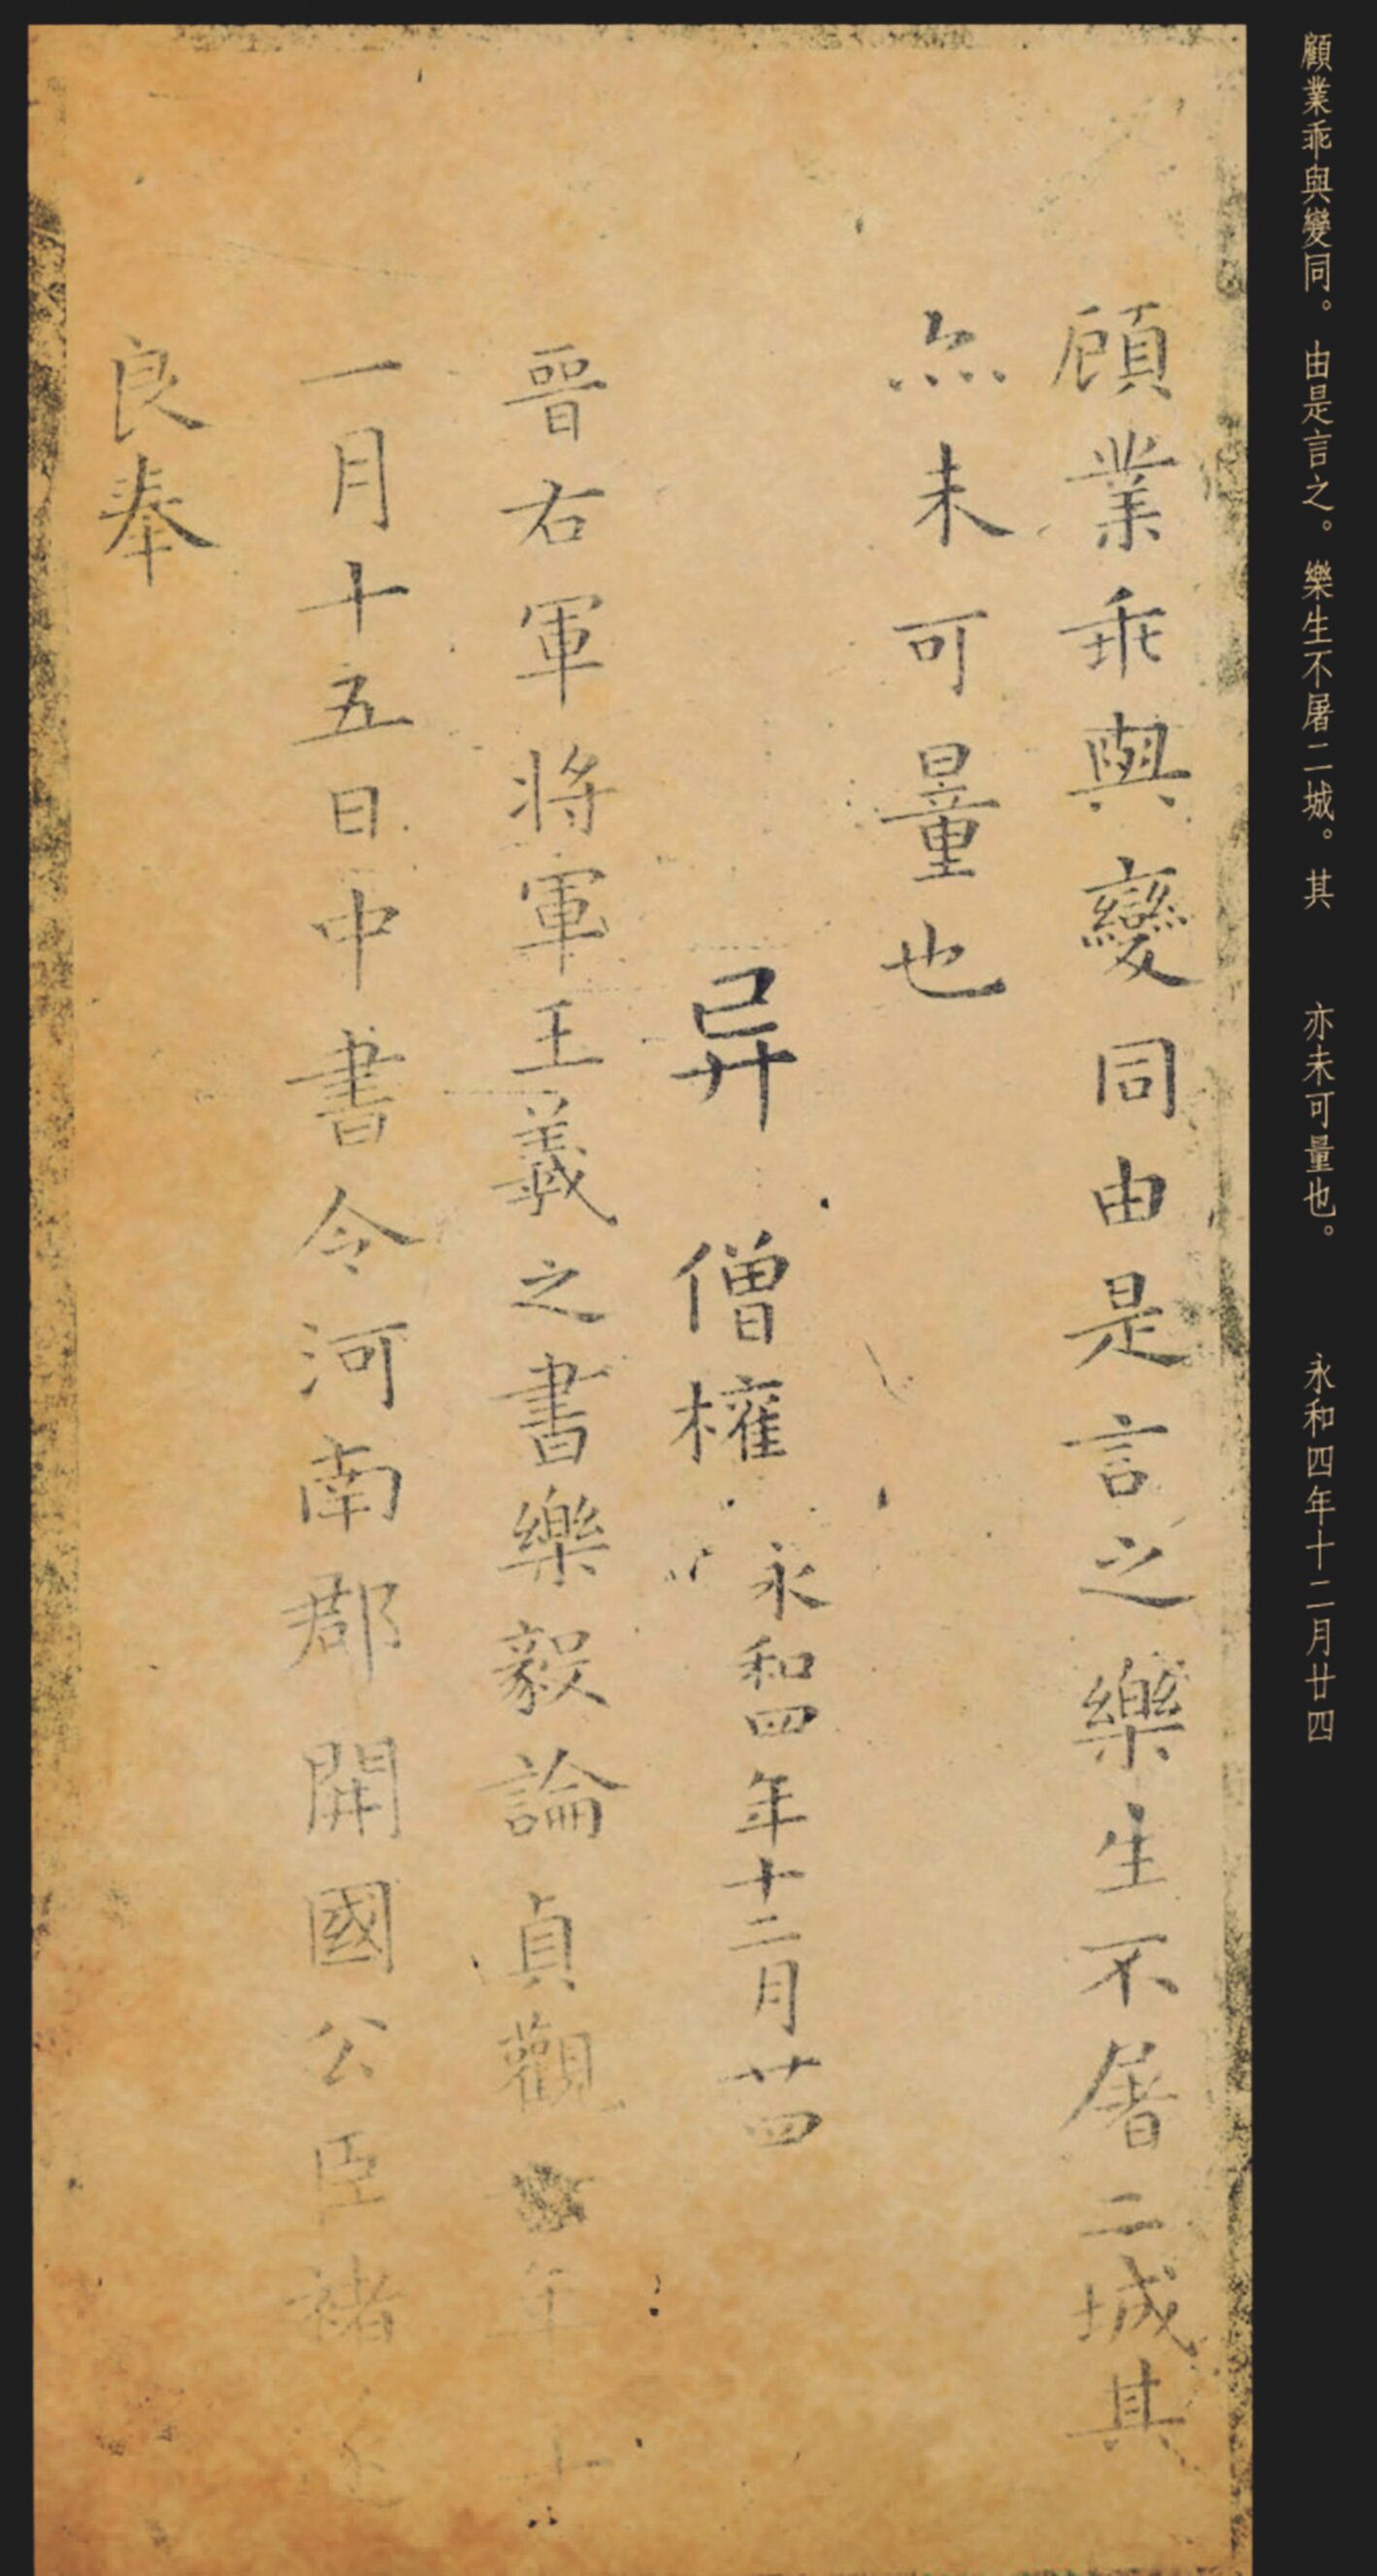 顧業乖與變同。由是言之。樂生不屠二城。其　亦未可量也。　永和四年十二月廿四
顧業乖與變同由是言之樂生不屠二城其
亦未可量也
异　僧權
永和四年十二月廿四
晉右軍將軍王羲之書樂毅論貞觀年十
一月十五日中書令河南郡開國公臣褚遂
良奉